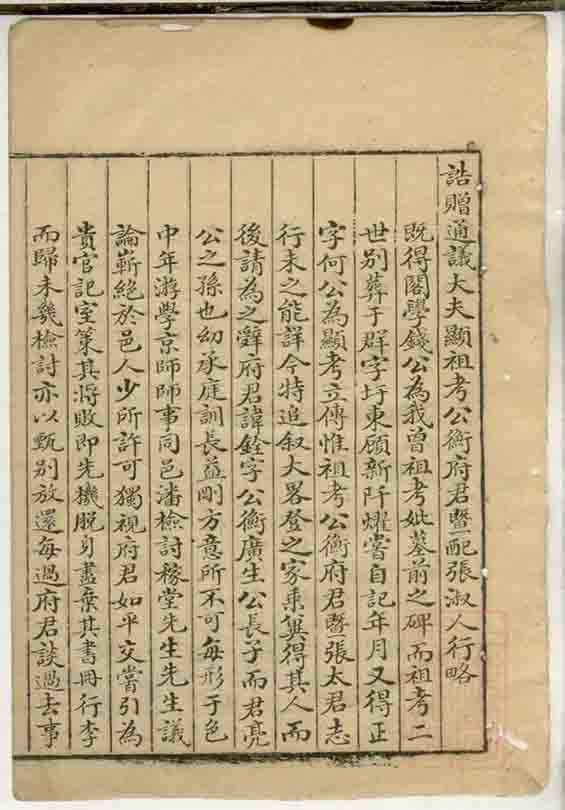 誥贈通議大夫顯祖考公衡府君暨配張淑人行略
既得閣學錢公為我曾祖考妣墓前之碑而祖考二
世别葬于群字圩東顧新阡燿嘗自記年月又得正
字何公為顯考立傳惟祖考公衡府君暨張太君志
行未之能詳今特追叙大畧登之家乘兾得其人而
後請為之辭府君諱銓字公衡廣生公長子而君亮
公之孫也幼承庭訓長益剛方意所不可每形于色
中年游學京師師事同邑潘檢討稼堂先生先生議
論嶄絕於邑人少所許可獨視府君如平交嘗引為
貴官記室策其將敗即先機脫身盡棄其書冊行李
而歸未幾檢討亦以甄别放還每過府君談過去事